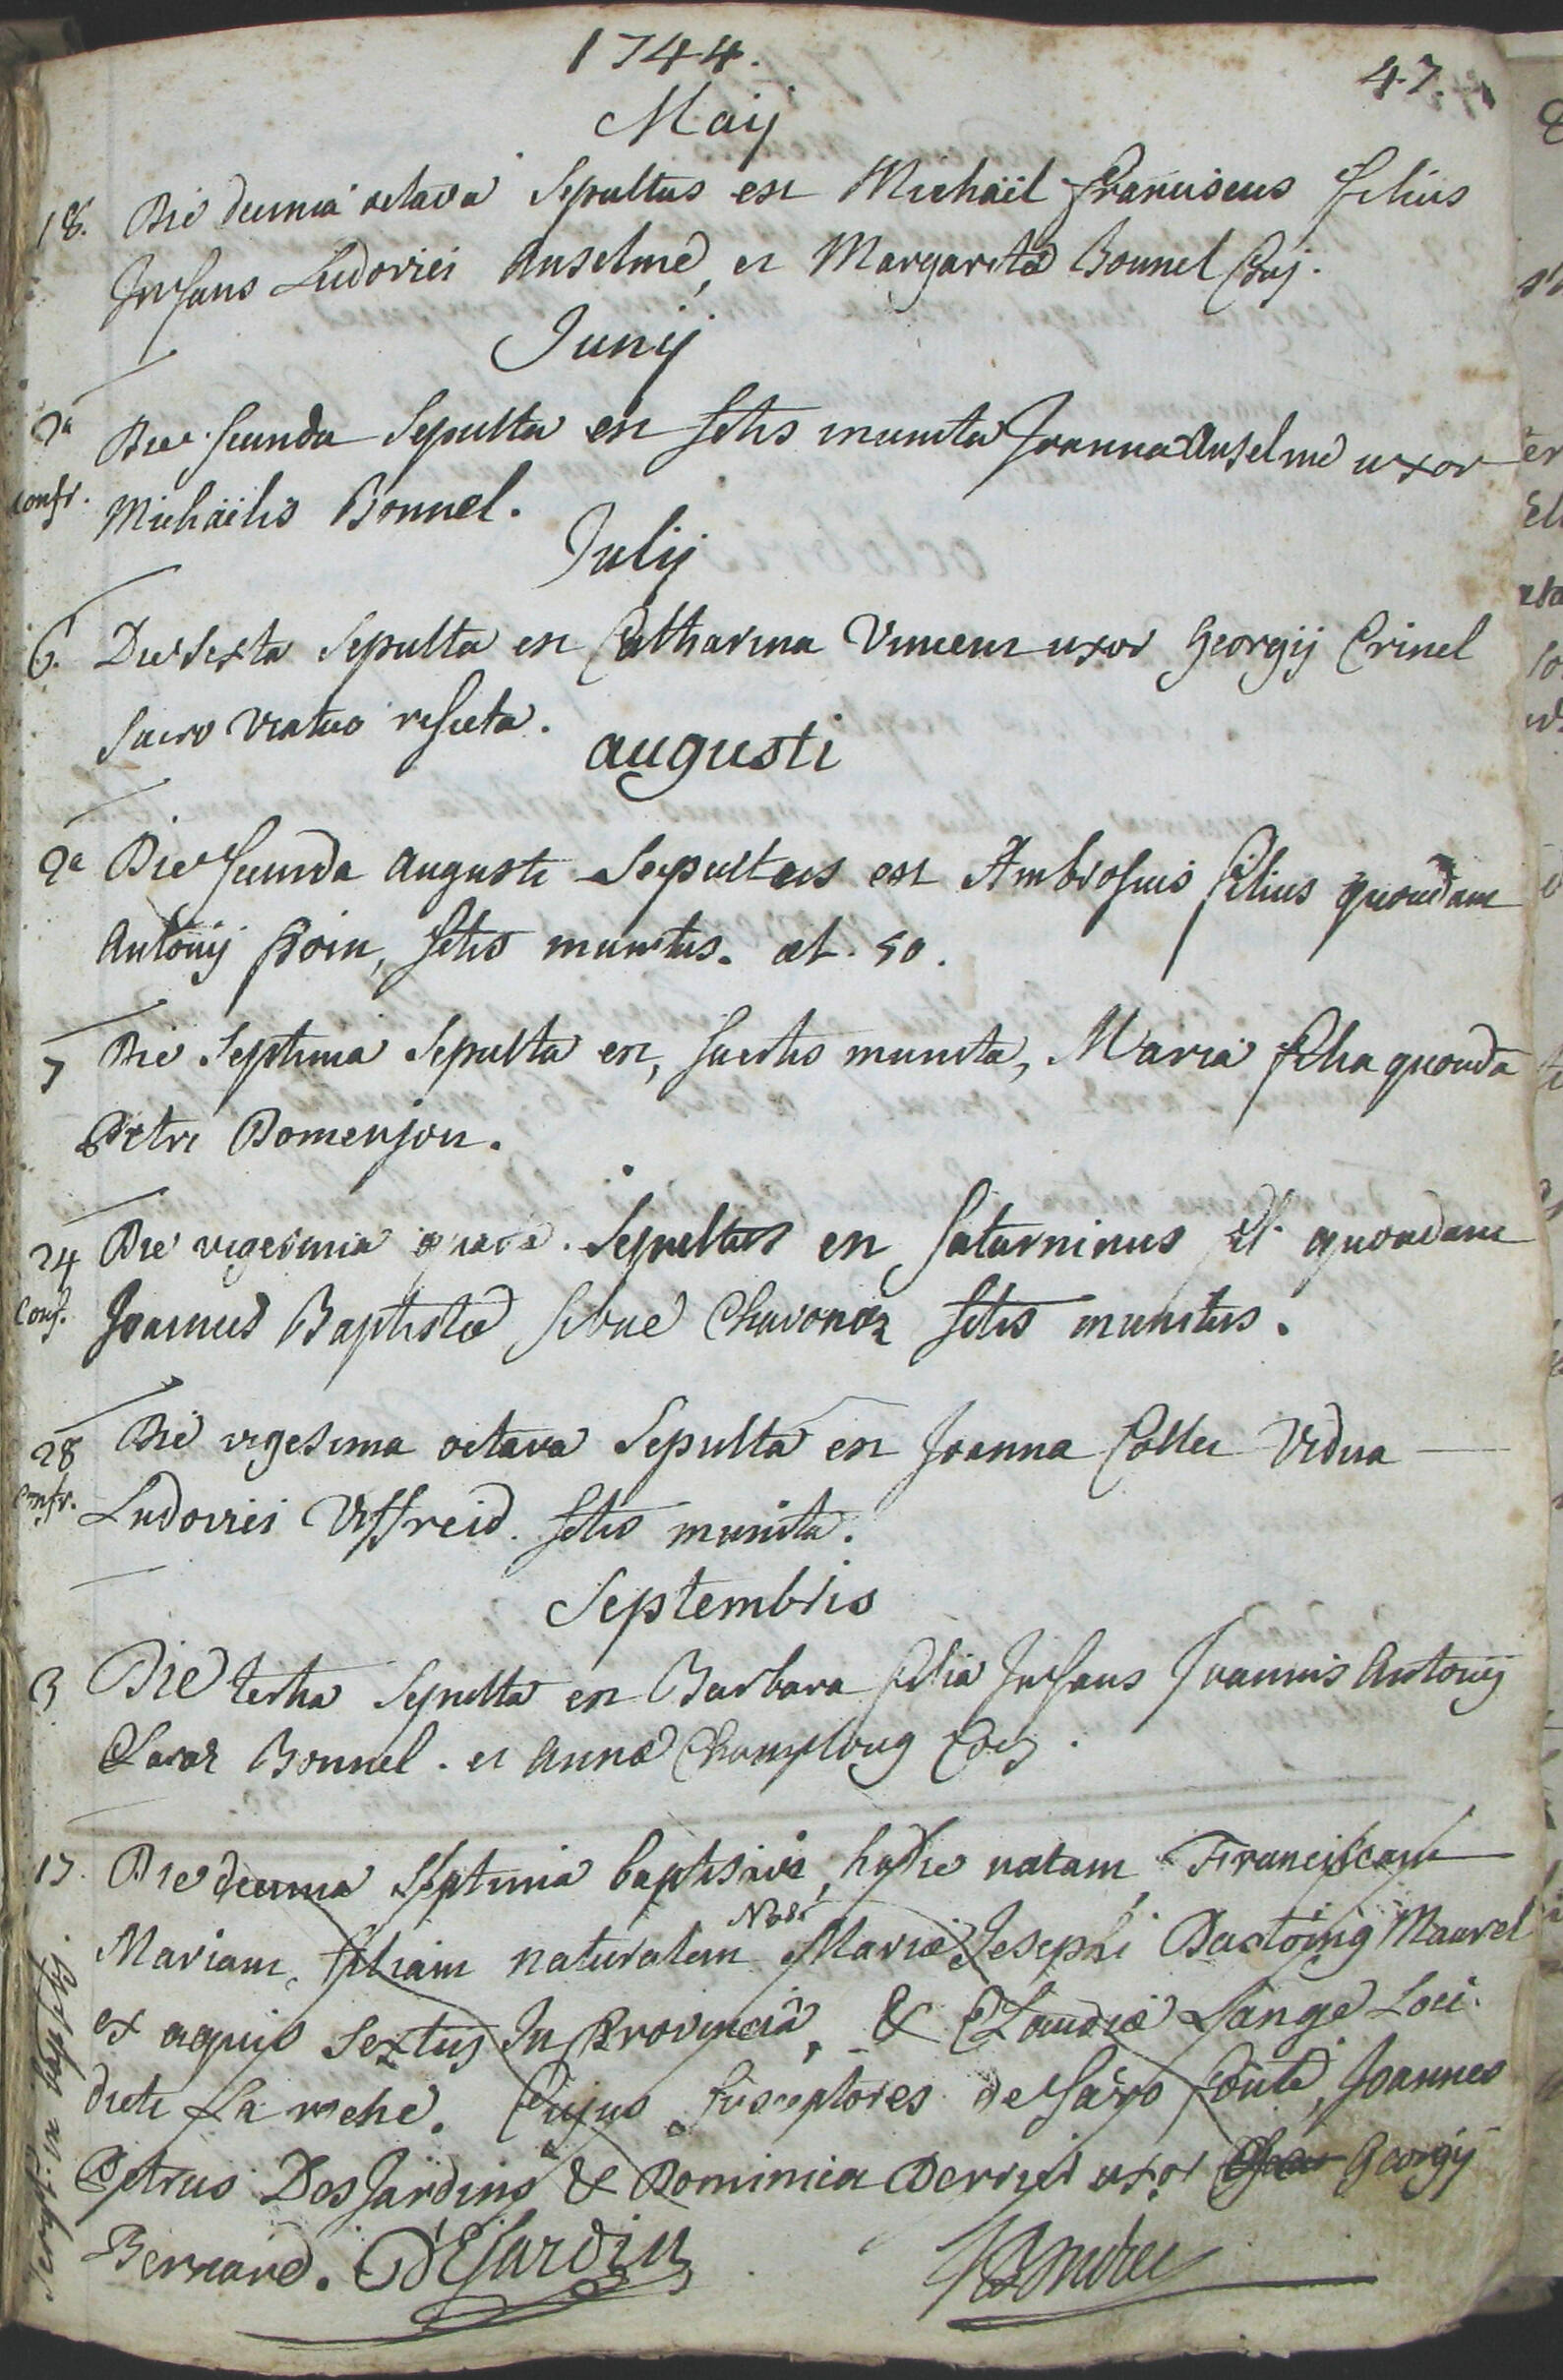 1744.
47.
Maij
18. Die decima octava Sepultus est Michaël franciscus filius
Infans Ludovici Anselme, et Margaritæ Bonnel Conj.
Junij
2a Die secunda Sepulta est sctis munita Joanna Anselme uxor
confr. Michaëlis Bonnel.
Julij
6. Die sexta Sepulta est Catharina Vincent uxor Georgij Crinel
sacro viatico refecta.
augusti
2a Die secunda augusti Sepultus est Ambrosius filius quondam
Antonij Roin, sctis munitus. æt. 50.
7 Die Septima Sepulta est, sactis munita, Maria filia quondā
Petri Domenjon.
24 Die vigesima quarta. Sepultus est Saturninus fil. quondam
Conf. Joannis Baptistæ sibue Chavonaz sctis munitus.
28 Die vigesima octava Sepulta est Joanna Collet Vidua
Confr. Ludovici Uffreid. sctis munita.
Septembris
3 Die tertia Sepulta est Barbara filia Infans Joannis Antonij
Clavaz Bonnel. et Annæ Champlong Conj.
17. Die decima Septima baptisavi, hodie natam Franciscam
Mariam, filiam naturalem Nobis Mariæ Josephi Dastoing Maurel
ex aquis Sextus In Provincia, & Claudiæ Lange Loci
dicti La roche. Cujus susceptores de sacro fonte, Joannes
Petrus DesJardins & Dominica Derrijt uxor Georgij
Bernard. DEsJardin
Script. in bapt.